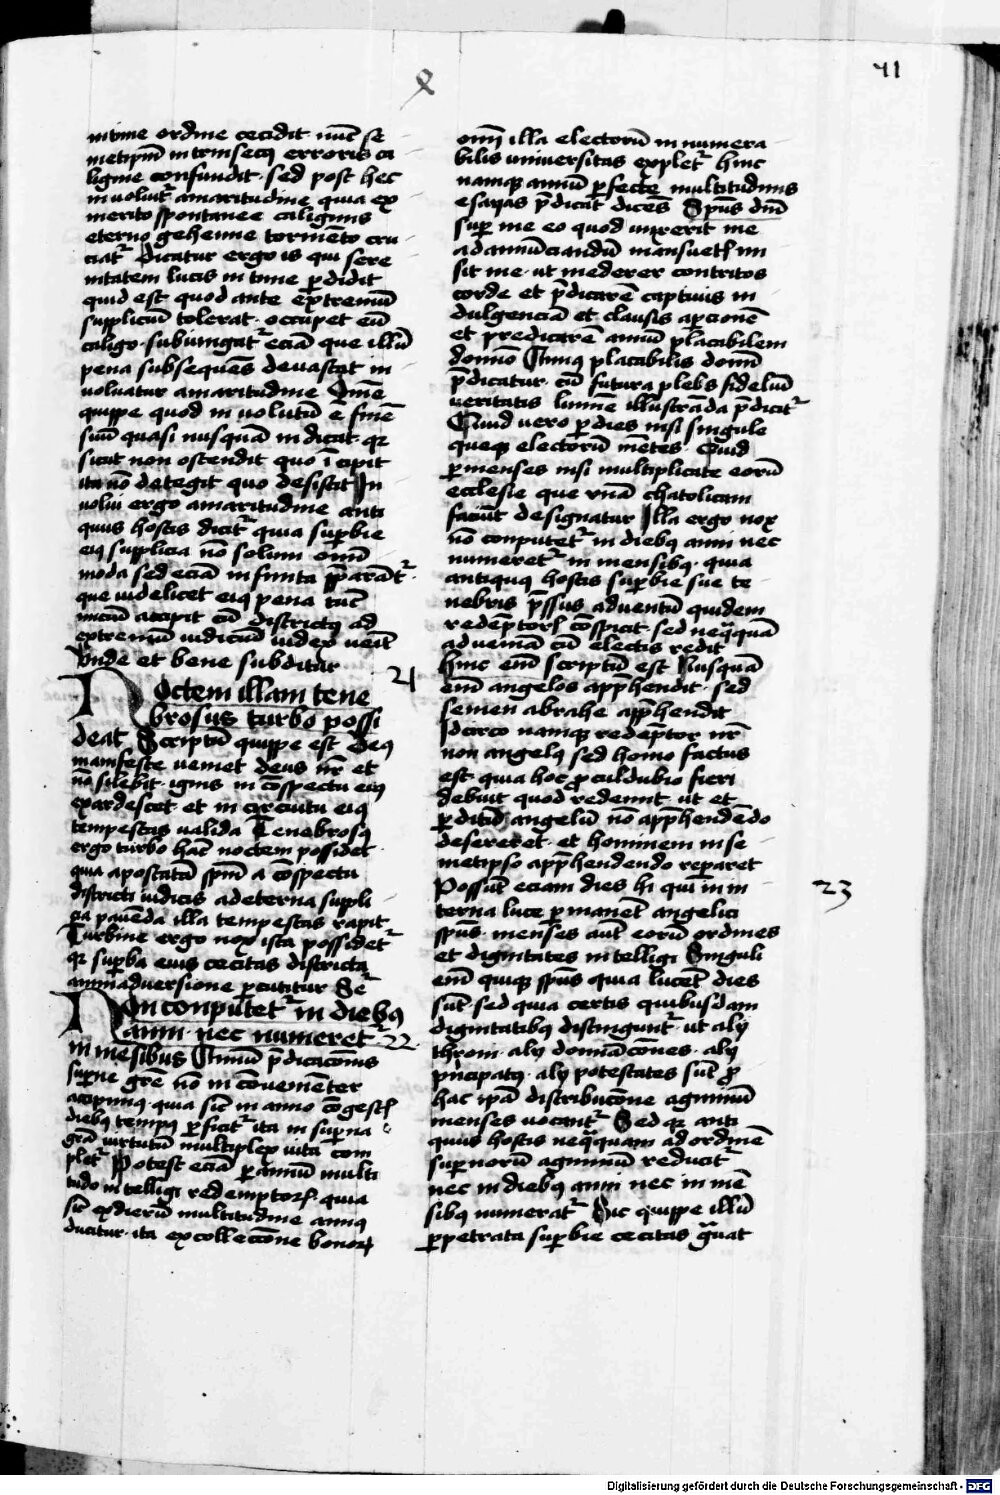 41
intime ordine cecidit nūc se
metipm̄ intrinsecꝰ erroris ca
ligine confundit · sed post hec
involuit᷑ amaritudine quia ex
merito spontanee caliginis
eterno gehenne tormēto cru
ciat᷑ Dicatur ergo is qui sere
nitatem lucis intime ꝑdidit
quid est quod ante extremū
suppliciū tolerat · occupet eū
caligo · subiungat᷑ eciā que illū
pena subsequēs devastat in
voluatur amaritudine Omē
quippe quod involutū ē finē
suū quasi nusquā indicat · qꝛ
sicut non ostendit quo īcipit
ita nō detegit quo desistit In
volui ergo amaritudine anti
quus hostis dicit᷑ quia suꝑbie
eiꝰ supplicia nō solum omī
moda sed eciā infinita p̄parāt᷑ ·
que videlicet eiꝰ pena tūc
iniciū accipit cū districtꝰ ad
extremū iudiciū iudex veīt
Vnde et bene subditur 21
Noctem illam tene
brosus turbo possi
deat Scriptū quippe est Deꝰ
manifeste veniet deus nr̄ et
nō silebit · ignis in cōspectu eiꝰ
exardescet et in circuitu eiꝰ
tempestas valida Tenebrosꝰ
ergo turbo hāc noctem possidet
quia apostatā spm̄ a cōspectu
districti iudicis ad eterna suppli
cia pavēda illa tempestas rapit
Turbine ergo nox ista possidet᷑
qꝛ suꝑba eius cecitas districta
animadversione ꝑcutitur Se᷑
Non conputet᷑ in diebꝰ
anni · nec numeret᷑ 22
in mēsibus Annū p̄dicacōnis
suꝑne grē nō inconveniēter
accipimꝰ · quia sic̄ in anno cōgestꝭ
diebꝰ tempꝰ ꝑficit᷑ ita in suꝑna
grā virtutū multiplex vita com
plet᷑ Potest eciā ꝑ annū multi
tudo intelligi redemptorꝭ · quia
sic̄ ex dierū multitudine annꝰ
ducitur · ita ex colleccōne bonoꝝ
omī illa electorū innumera
bilis universitas explet᷑ hinc
namqꝫ annū ꝑfecte multitudinis
esayas p̄dicat dicēs Spūs dnī
suꝑ me eo quod unxerit me
ad annūciandū mansuetꝭ mi
sit me · ut mederer contritos
corde et p̄dicarē captivis in
dulgenciā et clausis aꝑcionē
et predicarē annū placabilem
domino Annus placabilis domī
p̄dicatur · cū futura plebs fideliū
veritatis lumīe illustrāda p̄dicit᷑
Quid vero ꝑ dies nisi singule
queqꝫ electorū mētes · Quid
ꝑ menses nisi multiplicate eorū
ecclesie que vnā chatolicam
faciūt designatur Illa ergo nox
nō conputet᷑ in diebꝰ anni nec
numeret᷑ in mensibꝰ · quia
antiquꝰ hostis suꝑbie sue te
nebris p̄ssus adventū quidem
redēptorꝭ cōspicit sed neq̄quā
ad veniā cū electis redit
hinc eīm scriptū est Nusquā
eīm angelos app̄hendit · sed
semen abrahe app̄hendit
Idcirco namqꝫ redēptor nr̄
non angelꝰ sed homo factus
est · quia hoc ꝓculdubio fieri
debuit quod redemit · ut et
ꝑditū angelū nō app̄hendēdo
desereret · et hominem in se
metipso app̄hendendo reparet
Possūt eciam dies hi qui in in 23
terna luce ꝑmanēt angelici
spūs · menses aut̄ eorū ordines
et dignitates intelligi Singuli
eīm quiqꝫ spūs quia lucēt dies
sūt · sed quia certis quibusdam
dignitatibꝰ distingunt᷑ · ut alij
throni · alij domīacōnes · alij
p̄ncipatꝰ · alij potestates sūt ꝓ
hac ipā distribucōne agminū
menses vocant᷑ Sed qꝛ anti
quus hostis neq̄quam ad ordinē
suꝑnorū agminū reducit᷑
nec in diebꝰ anni nec in mē
sibꝰ numerat᷑ Sic quippe illū
ꝑpetrata suꝑbie cecitas gͣuat
Digitalisierung gefördert durch die Deutsche Forschungsgemeinschaft - DFG